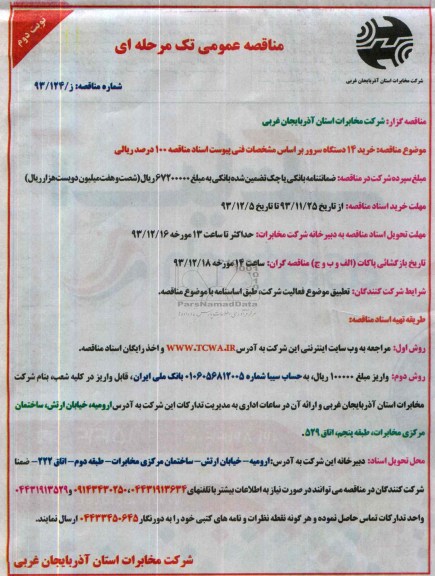 نوبت دوم
مناقصه عمومی تک مرحله ای
شرکت مخابرات استان آذربایجان غربی
شماره مناقصه: ز/۹۳/۱۲۴
مناقصه گزار: شرکت مخابرات استان آذربایجان غربی
موضوع مناقصه: خرید ۱۴ دستگاه سرور بر اساس مشخصات فنی پیوست اسناد مناقصه ۱۰۰ درصد ریالی
مبلغ سپرده شرکت در مناقصه: ضمانتنامه بانکی یا چک تضمین شده بانکی به مبلغ ۶۷۲۰۰۰۰۰ ریال (شصت و هفت میلیون دویست هزار ریال)
مهلت خرید اسناد مناقصه: از تاریخ ۹۳/۱۱/۲۵ تا تاریخ ۹۳/۱۲/۵
مهلت تحویل اسناد مناقصه به دبیرخانه شرکت مخابرات: حداکثر تا ساعت ۱۳ مورخه ۹۳/۱۲/۱۶
تاریخ بازگشائی پاکات (الف و ب و ج) مناقصه گران: ساعت ۱۴ مورخه ۹۳/۱۲/۱۸
شرایط شرکت کنندگان: تطبیق موضوع فعالیت شرکت، طبق اساسنامه با موضوع مناقصه.
ParsNamadData
طریقه تهیه اسناد مناقصه:
روش اول: مراجعه به وب سایت اینترنتی این شرکت به آدرس WWW.TCWA.IR و اخذ رایگان اسناد مناقصه.
روش دوم: واریز مبلغ ۱۰۰۰۰۰ ریال، به حساب سیبا شماره ۰۱۰۶۰۵۶۸۱۲۰۰۵ بانک ملی ایران، قابل واریز در کلیه شعب، بنام شرکت
مخابرات استان آذربایجان غربی و ارائه آن در ساعات اداری به مدیریت تدارکات این شرکت به آدرس ارومیه، خیابان ارتش، ساختمان
مرکزی مخابرات، طبقه پنجم، اتاق ۵۲۹.
محل تحویل اسناد: دبیرخانه این شرکت به آدرس: ارومیه – خیابان ارتش – ساختمان مرکزی مخابرات – طبقه دوم – اتاق ۲۲۲ – ضمنا
شرکت کنندگان در مناقصه می توانند در صورت نیاز به اطلاعات بیشتر با تلفنهای ۰۴۴۳۱۹۱۳۶۳۴، ۰۹۱۴۳۴۳۰۲۵۰ و ۰۴۴۳۱۹۱۳۵۲۹
واحد تدارکات تماس حاصل نموده و هر گونه نقطه نظرات و نامه های کتبی خود را به دورنگار ۰۴۴۳۳۴۵۰۶۴۵ ارسال نمایند.
شرکت مخابرات استان آذربایجان غربی